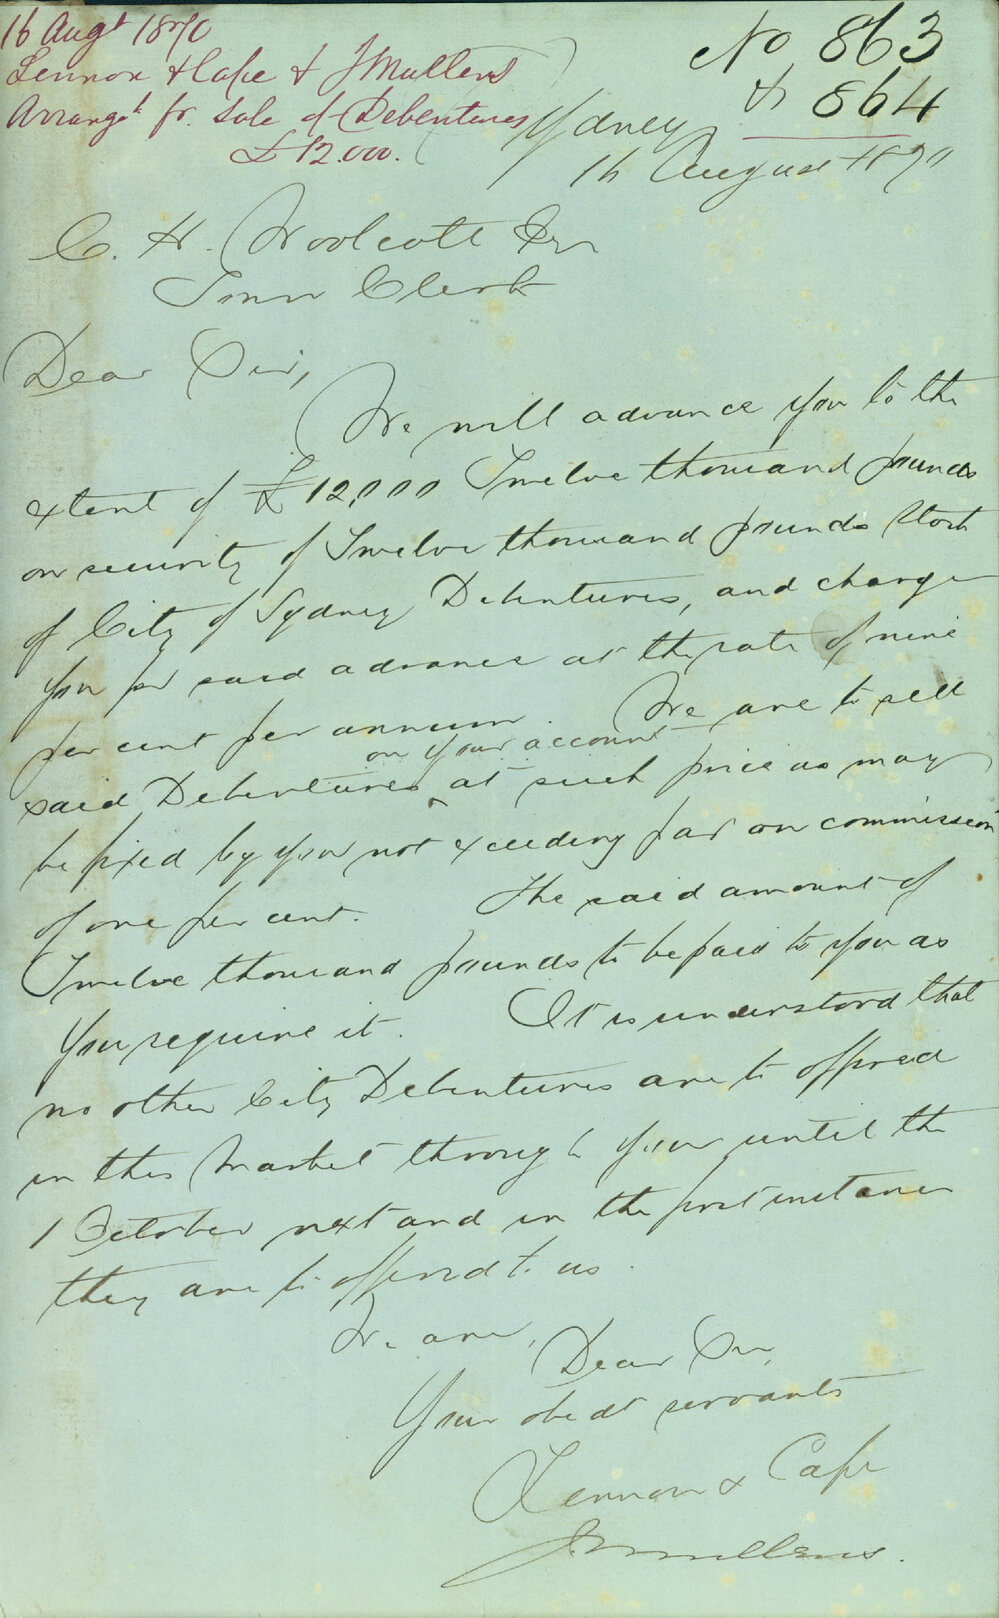 16 Augt 1870
Lennon & Cape & J Mullens
Arrangt fr. Sale of Debentures
£12.000.
No 863
& 864
Sydney
16 August 1870
C. H. Woolcott Esqr
Town Clerk
Dear Sir,
We will advance you to the
extent of £12,000 Twelve thousand pounds
on security of Twelve thousand pounds Stock
of City of Sydney Debentures, and charge
you for said advance at the rate of nine
per cent per annum. We are to sell
on your account
said Debentures ^ at such price as may
be fixed by you not exceeding par on commission
of one per cent. The said amount of
Twelve thousand pounds to be paid to you as
you require it. It is understood that
no other City Debentures are to offered
in this Market through you until the
1 October next and in the first instance
they are to offered to us.
We are,
Dear Sir,
Your obedt servants
Lennon & Cape
J Mullens.